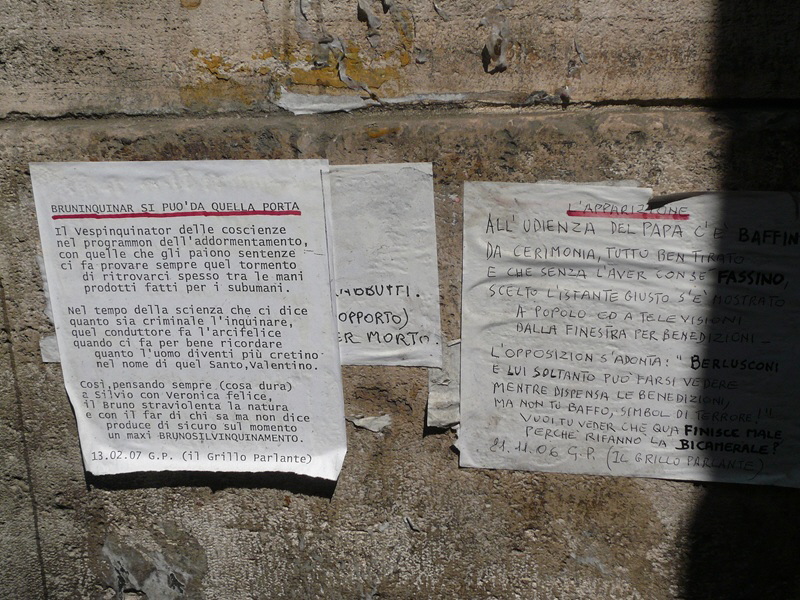 BRUNINQUINAR SI PUO'DA QUELLA PORTA
Il Vespinquinator delle coscienze
nel programmon dell'addormentamento,
con quelle che gli paiono sentenze
ci fa provare sempre quel tormento
di ritrovarci spesso tra le mani
prodotti fatti per i subumani.
Nel tempo della scienza che ci dice
quanto sia criminale l'inquinare,
quel conduttore fa l'arcifelice
quando ci fa per bene ricordare
quanto l'uomo diventi più cretino
nel nome di quel Santo,Valentino.
Così,pensando sempre (cosa dura)
a Silvio con Veronica felice,
il Bruno straviolenta la natura
e con il far di chi sa ma non dice
produce di sicuro sul momento
un maxi BRUNOSILVINQUINAMENTO.
13.02.07 G.P. (il Grillo Parlante)
OPPORTO)
ER MORTO.
L'APPARIZIONE
ALL'UDIENZA DEL PAPA C'E' BAFFIN
DA CERIMONIA, TUTTO BEN TIRATO
E CHE SENZA L'AVER CON SE FASSINO,
SCELTO L'ISTANTE GIUSTO S'E' MOSTRATO
A POPOLO ED A TELEVISIONI
DALLA FINESTRA PER BENEDIZIONI
L'OPPOSIZION S'ADONTA: "BERLUSCONI
E LUI SOLTANTO PUÒ FARSI VEDERE
MENTRE DISPENSA LE BENEDIZIONI,
MA NON TU BAFFO, SIMBOL DI TERRORE!"
VUOI TU VEDER CHE QUA FINISCE MALE
PERCHÈ RIFANNO LA BICAMERALE?
21.11.06 G.P. (IL GRILLO PARLANTE)